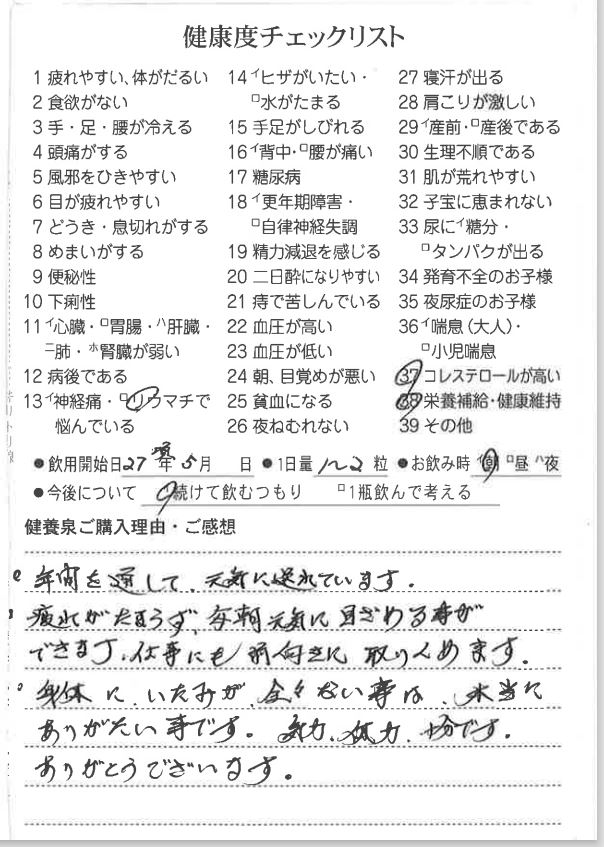 健康度チェックリスト
1 疲れやすい、体がだるい
2 食欲がない
3 手・足・腰が冷える
4 頭痛がする
5 風邪をひきやすい
6 目が疲れやすい
7 どうき・息切れがする
8 めまいがする
9 便秘性
10 下痢性
11 ィ心臓・ロ胃腸・ハ肝臓・
ニ肺・ホ腎臓が弱い
12 病後である
13 イ神経痛・ロリウマチで
悩んでいる
14 イヒザがいたい・
ロ水がたまる
15 手足がしびれる
16 イ背中・ロ腰が痛い
17 糖尿病
18 イ更年期障害・
ロ自律神経失調
19 精力減退を感じる
20 二日酔になりやすい
21 痔で苦しんでいる
22 血圧が高い
23 血圧が低い
24 朝、目覚めが悪い
25 貧血になる
26 夜ねむれない
27 寝汗が出る
28 肩こりが激しい
29 イ産前・ロ産後である
30 生理不順である
31 肌が荒れやすい
32 子宝に恵まれない
33 尿にイ糖分・
ロタンパクが出る
34 発育不全のお子様
35 夜尿症のお子様
36 イ喘息(大人)・
ロ小児喘息
37 コレステロールが高い
38 栄養補給・健康維持
39 その他
●飲用開始日 27年 5月 日 ●1日量 1〜2 粒 ●お飲み時 イ朝 ロ昼 ハ夜
●今後について イ続けて飲むつもり ロ1瓶飲んで考える
健養泉ご購入理由・ご感想
年間を通して、元気に送れています。
疲れがたまらず、毎朝元気に目ざめる事が
できます、仕事にも前向きに取りくめます。
身体に、いたみが、全々ない事は、本当に
ありがたい事です。気力、体力、十分です。
ありがとうございます。